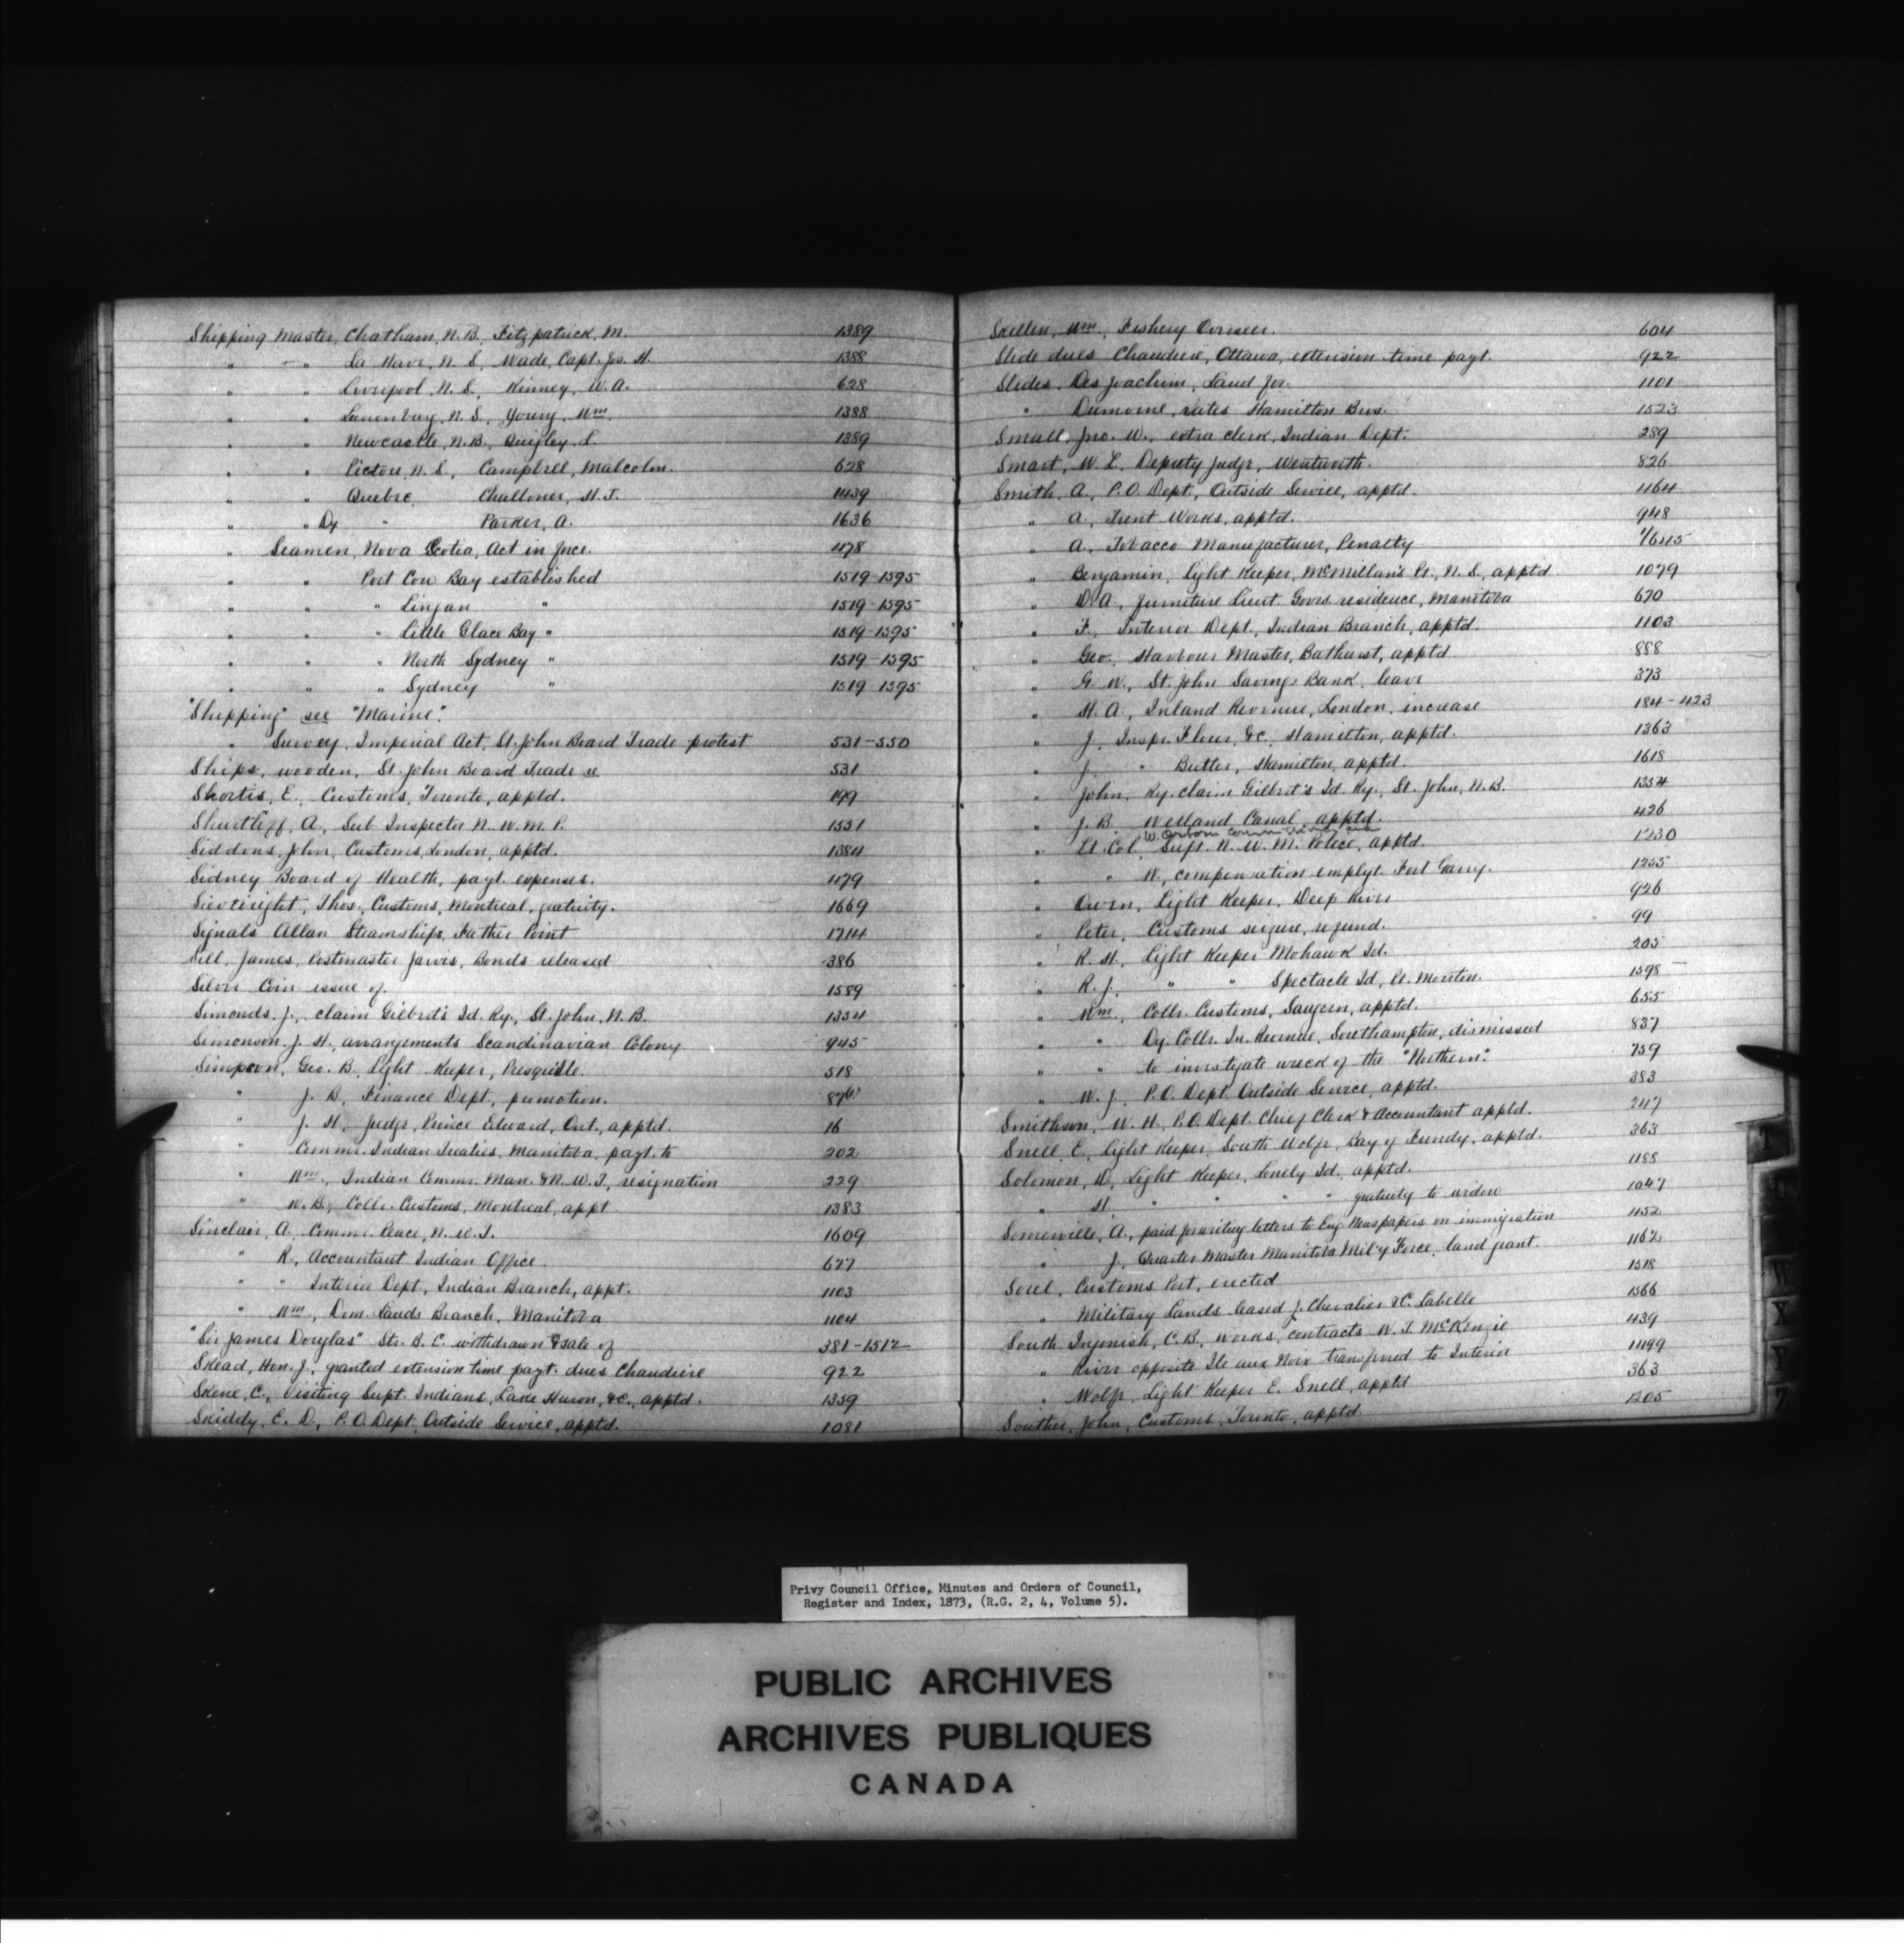 Shipping Master, Chatham, N.B. Fitzpatrick, M. 1389
" " La Have, N.S., Wade, Capt. Jos. H. 1388
" " Liverpool, N.S., Kinney, W.A. 628
" " Lunenburg, N.S. Young, Wm. 1388
" " Newcastle, N.B., Quigley, L. 1389
" " Pictou, N.S., Campbell, Malcolm. 628
" " Quebec, Challoner, H.J. 1439
" " Dy " Parker, A. 1636
" Seamen, Nova Scotia, Act in force. 1178
" " Port Cow Bay established 1519-1595
" " " Lingan " 1519-1595
" " " Little Glace Bay " 1519-1595
" " " North Sydney " 1519-1595
" " " Sydney " 1519-1595
"Shipping" see "Marine".
" Survey, Imperial Act, St. John Board Trade protest 531-550
Ships, wooden, St. John Board Trade re 531
Shortis, E., Customs, Toronto, apptd. 199
Shurtliff, A., Sub Inspector N.W.M.P. 1551
Siddons, John, Customs, London, apptd. 1384
Sidney Board of Health, payt. expenses. 1179
Sieveright, Thos., Customs, Montreal, gratuity. 1669
Signals Allan Steamships, Father Point 1714
Sill, James, Postmaster Jarvis, Bonds released 386
Silver Coin issue of. 1589
Simonds, J., claim Gilbert's Id. Ry., St. John, N.B. 1354
Simonson, J.H., arrangements Scandinavian Colony 945
Simpson, Geo. B. Light Keeper, Presqu'ile. 518
" J.B., Finance Dept., promotion.
" J.H., Judge, Prince Edward, Ont., apptd. 16
" Commr. Indian Treaties, Manitoba, payt. to 202
" Wm., Indian Commr. Man. & N.W.T., resignation 229
" W.B., Collr. Customs, Montreal, appt. 1383
Sinclair, A., Commr. Peace, N.W.T. 1609
" R., Accountant Indian Office. 677
" " Interior Dept., Indian Branch, appt. 1103
" Wm., Dom. Lands Branch, Manitoba 1104
"Sir James Douglas" Str. B.C. withdrawn & sale of 381-1512
Skead, Hon. J., granted extension time payt. dues Chaudiere 922
Skene, C., Visiting Supt. Indians, Lake Huron, &c., apptd. 1359
Skiddy, E.D., P.O. Dept. Outside Service, apptd. 1081
Skellen, Wm., Fishery Overseer. 604
Slide dues Chaudiere, Ottawa, extension time payt. 922
Slides, Des Joachim, Land for. 1101
" Dumoine, rates Hamilton Bros. 1523
Small, Jno. W., extra clerk, Indian Dept. 289
Smart, W.L. Deputy Judge, Wentworth. 826
Smith, A., P.O. Dept., Outside Service, apptd. 1164
" A., Trent Works, apptd. 948
" A., Tobacco Manufacturer, Penalty 1645
" Benjamin, Light Keeper, McMillan's Pt., N.S., apptd 1079
" D.A., furniture Lieut. Govrs. residence, Manitoba 670
" F., Interior Dept., Indian Branch, apptd. 1103
" Geo., Harbour Master, Bathurst, apptd 888
" G.W., St. John Savings Bank, leave 373
" H.A., Inland Revenue, London, increase 184-423
" J., Inspr. Flour, &c., Hamilton, apptd. 1363
" J. " Butter, Hamilton, apptd. 1618
" John, Ry. claim Gilbert's Id. Ry., St. John, N.B. 1354
" J.B. Welland Canal, apptd. 426
W. Osborn
" Lt. Col. Supt. N.W.M. Police, apptd. 1230
" " W., compensation emplyt. Fort Garry. 1255
" Owen, Light Keeper, Deep River 926
" Peter, Customs seizure, refund. 99
" R.H., Light Keeper Mohawk Id. 205
" R.J. " " Spectacle Id., Pt. Mouton. 1598
" Wm., Collr. Customs, Saugeen, apptd. 655
" " Dy. Collr. In. Revenue, Southampton, dismissed 837
" " to investigate wreck of the "Northern". 759
" W.J., P.O. Dept. Outside Service, apptd. 383
Smithson, W.H., P.O. Dept. Chief Clerk & Accountant apptd. 247
Snell, E., Light Keeper, South Wolfe, Bay of Fundy, apptd. 363
Solomon, D., Light Keeper, Lonely Id. apptd. 1188
" H. " " " " gratuity to widow 1047
Somerville, A., paid for writing letters to Eng. Newspapers on immigration 1152
" J., Quarter Master Manitoba Mil'y Force, land grant. 1162
Sorel, Customs Port, erected 1518
" Military Lands leased J. Chevalier & C. Labelle 1566
South Ingonish, C.B., works, contracts W.T. McKenzie 1139
" River opposite Ile aux Noix transferred to Interior 1499
" Wolfe, Light Keeper E. Snell, apptd 363
Souther, John, Customs, Toronto, apptd. 1205
T
W
X
Y
Z
Privy Council Office, Minutes and Orders of Council,
Register and Index, 1873, (R.G. 2, 4, Volume 5).
PUBLIC ARCHIVES
ARCHIVES PUBLIQUES
CANADA